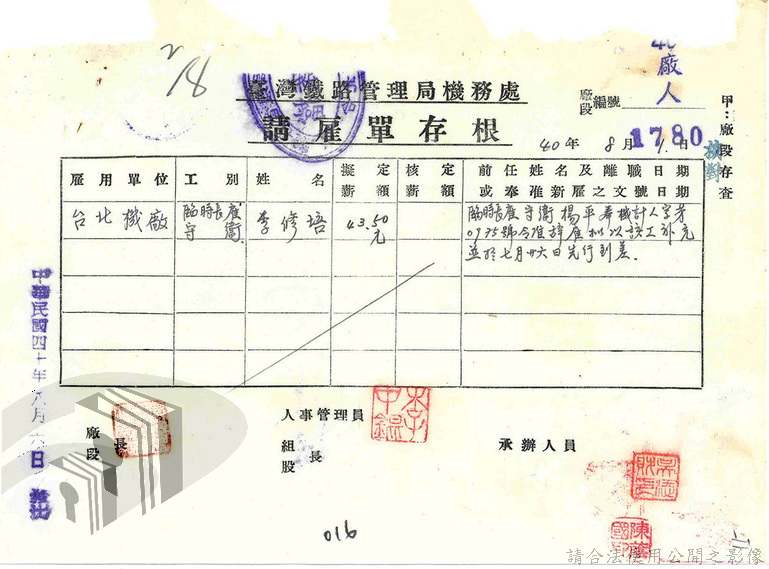 臺灣鐵路管理局機務處
請雇單存根
廠段 編號 廠人 1780
40年 8月 1日
甲：廠段存查
核對
雇用單位 工別 姓名 擬定薪額 核定薪額 前任姓名及離職日期或奉准新雇之文號日期
台北機廠 臨時長雇守衛 李修珸 43.50元
臨時長雇守衛楊平奉機計人字第
0935號令准辭雇擬以該工补充
並於七月廿六日先行到差.
中華民國四十年八月六日
廠段長
人事管理員
組股長
承辦人員
016
請合法使用公開之影像